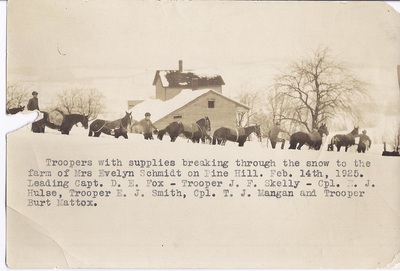 Troopers with supplies breaking through the snow to the
farm of Mrs Evelyn Schmidt on Pine Hill. Feb. 14th, 1925.
Leading Capt. D. E. Fox - Trooper J. F. Skelly - Cpl. H. J.
Hulse, Trooper E. J. Smith, Cpl. T. J. Mangan and Trooper
Burt Mattox.